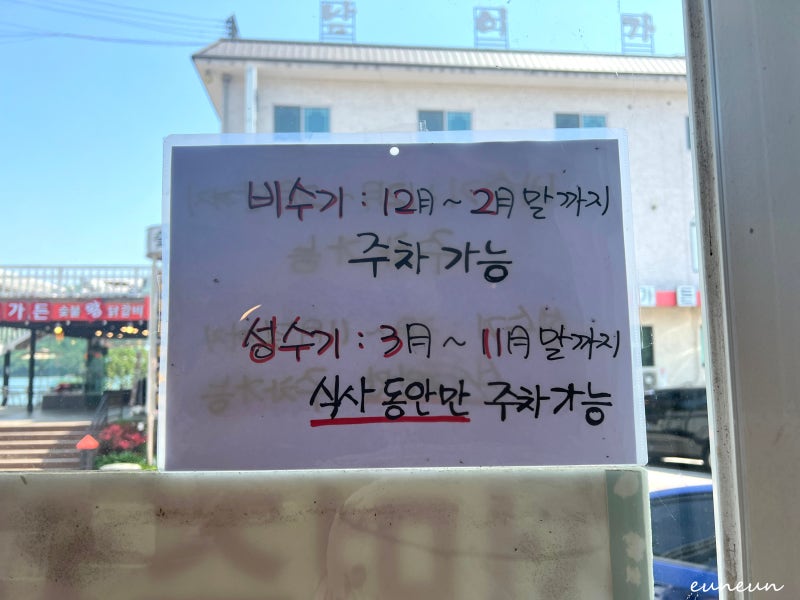 비수기 : 12月 ~ 2月 말까지
주차 가능
성수기 : 3月 ~ 11月 말까지
식사 동안만 주차가능
가든 숯불 닭갈비
euneun